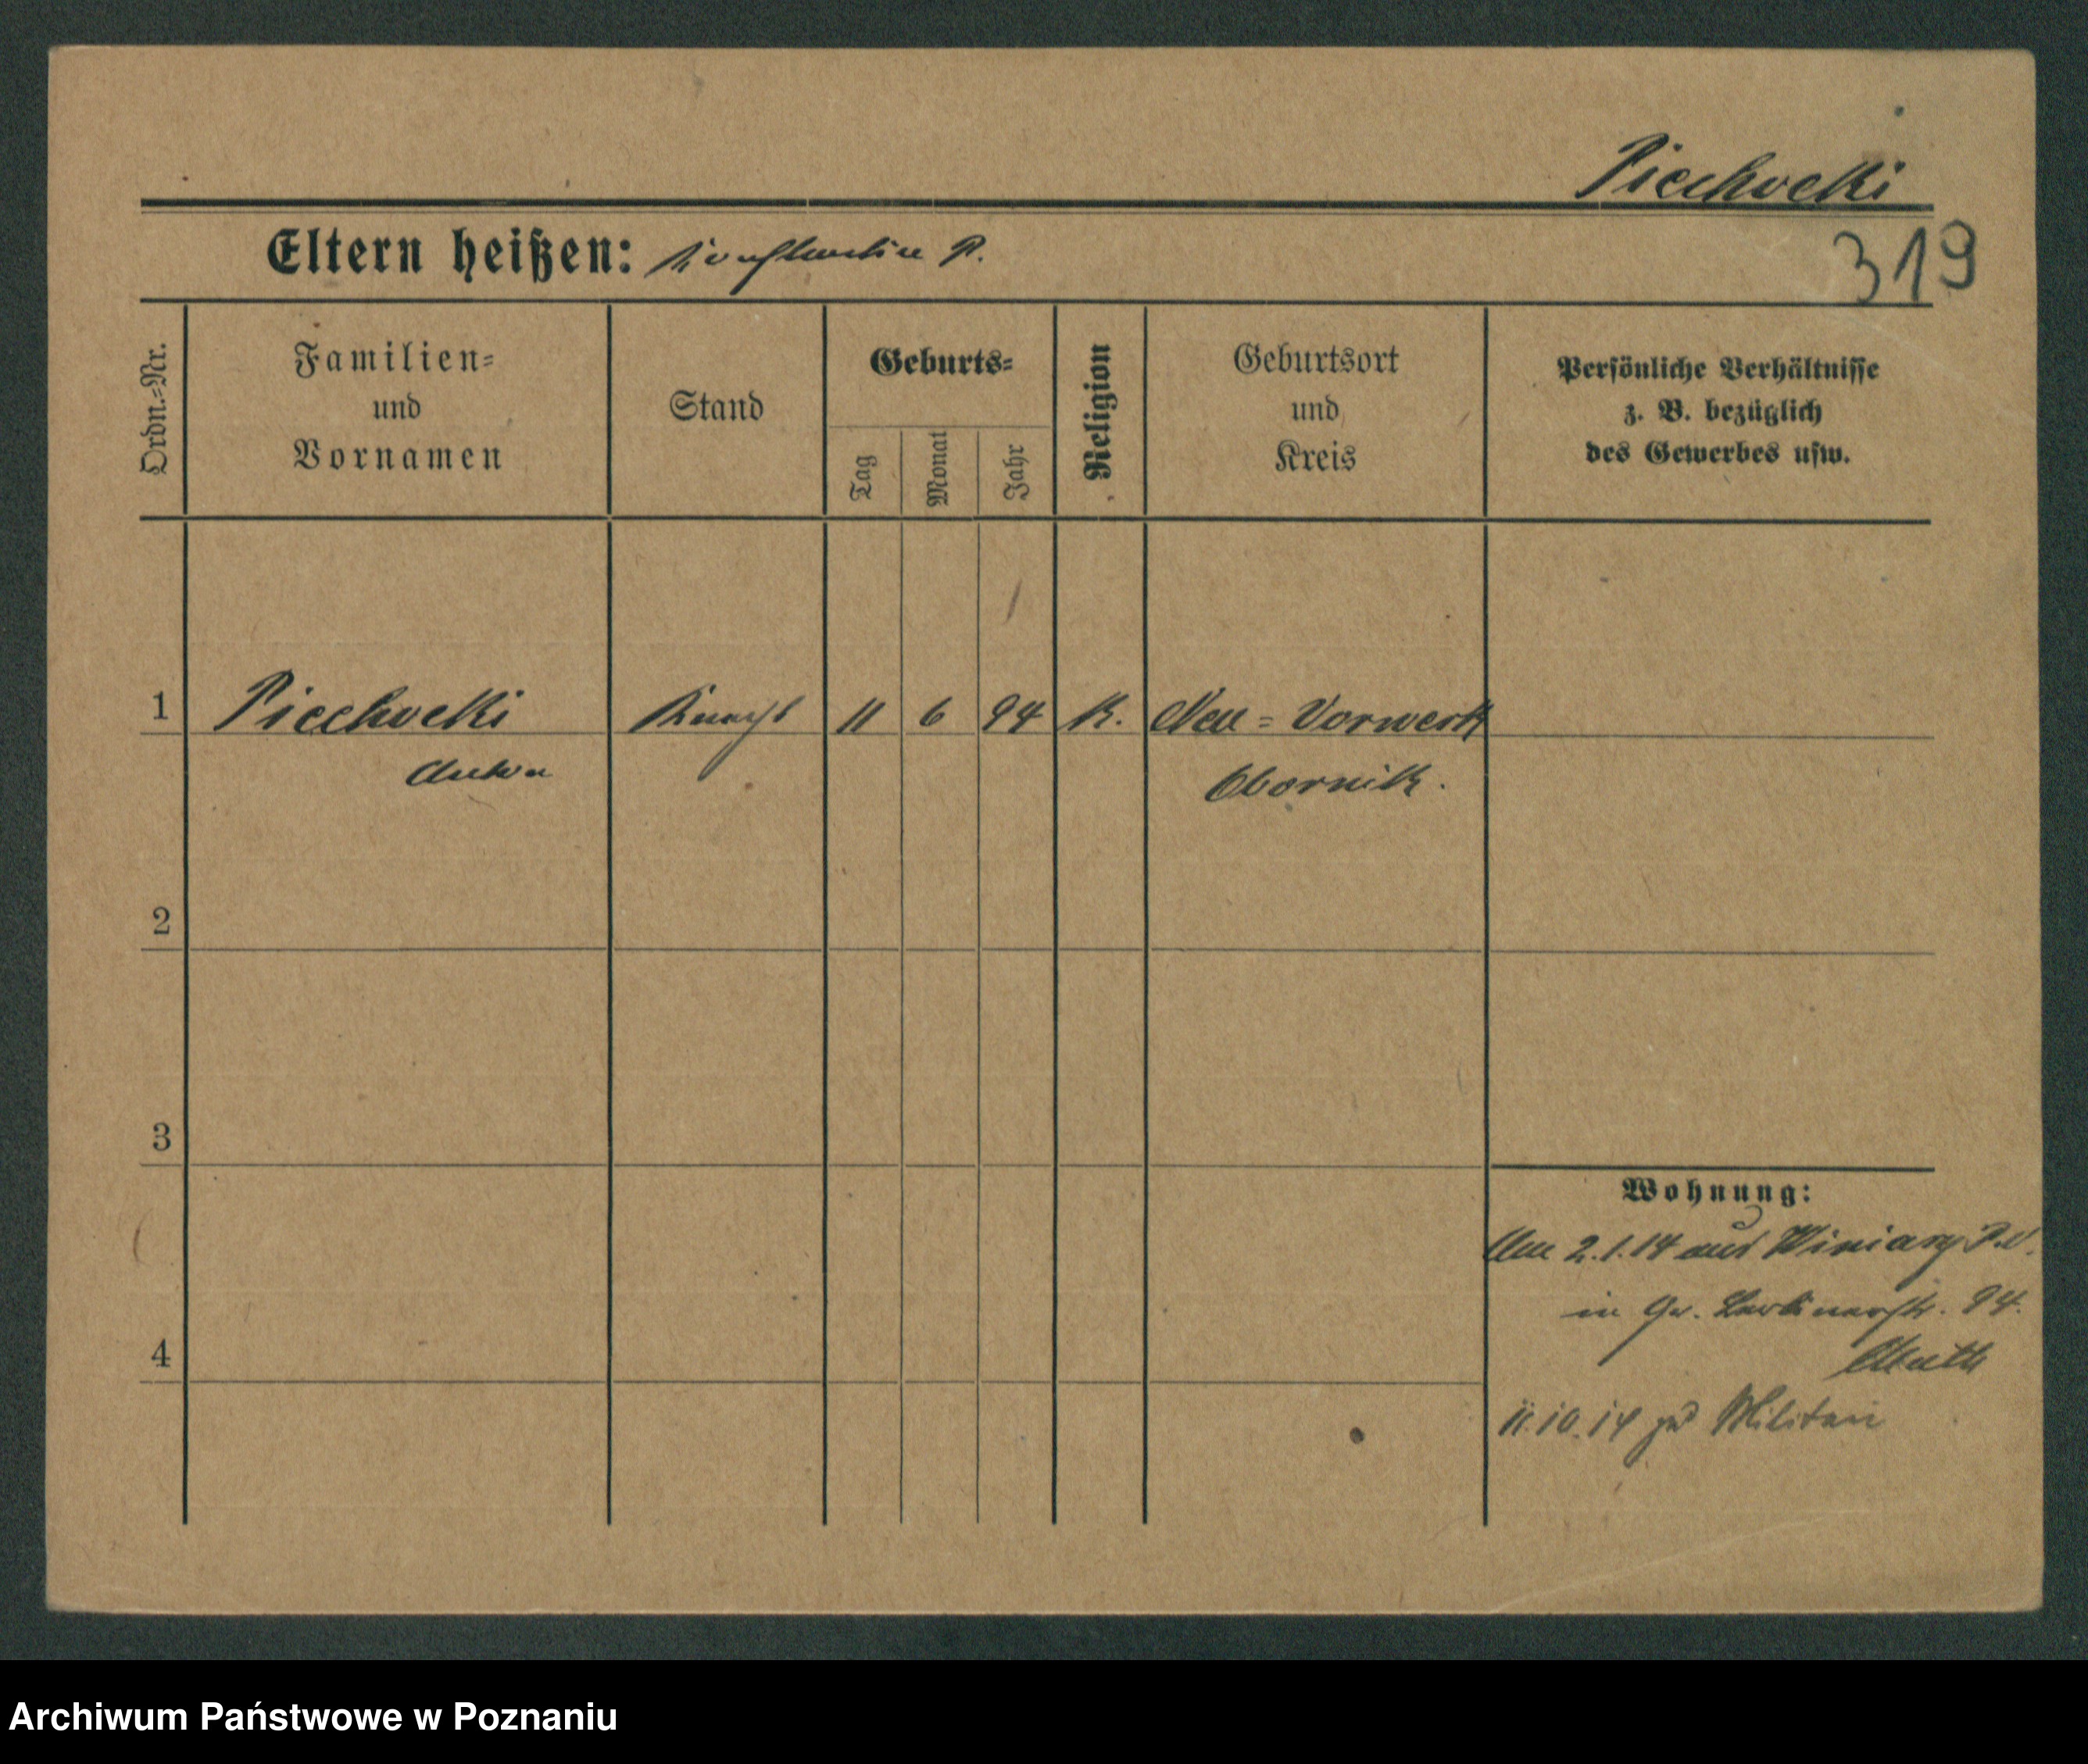 Piechocki
Eltern heißen: Konstantin P.
319
Ordn.=Nr.
Familien=
und
Vornamen
Stand
Geburts=
Tag
Monat
Jahr
Religion
Geburtsort
und
Kreis
Persönliche Verhältnisse
z. B. bezüglich
des Gewerbes usw.
1 Piechocki Knecht 11 6 94 K. Neu=Vorwerk
Anton Obornik.
2
3
4
Wohnung:
Am 2.1.14 aus Winiary
in Berlinerstr. 94.
11.10.14 zum Militär
Archiwum Państwowe w Poznaniu